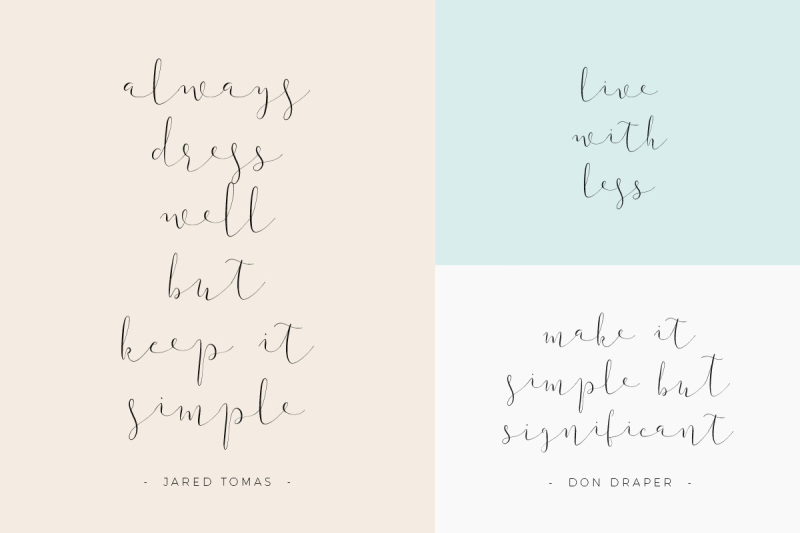 always
dress
well
but
keep it
simple
- JARED TOMAS -
live
with
less
make it
simple but
significant
- DON DRAPER -